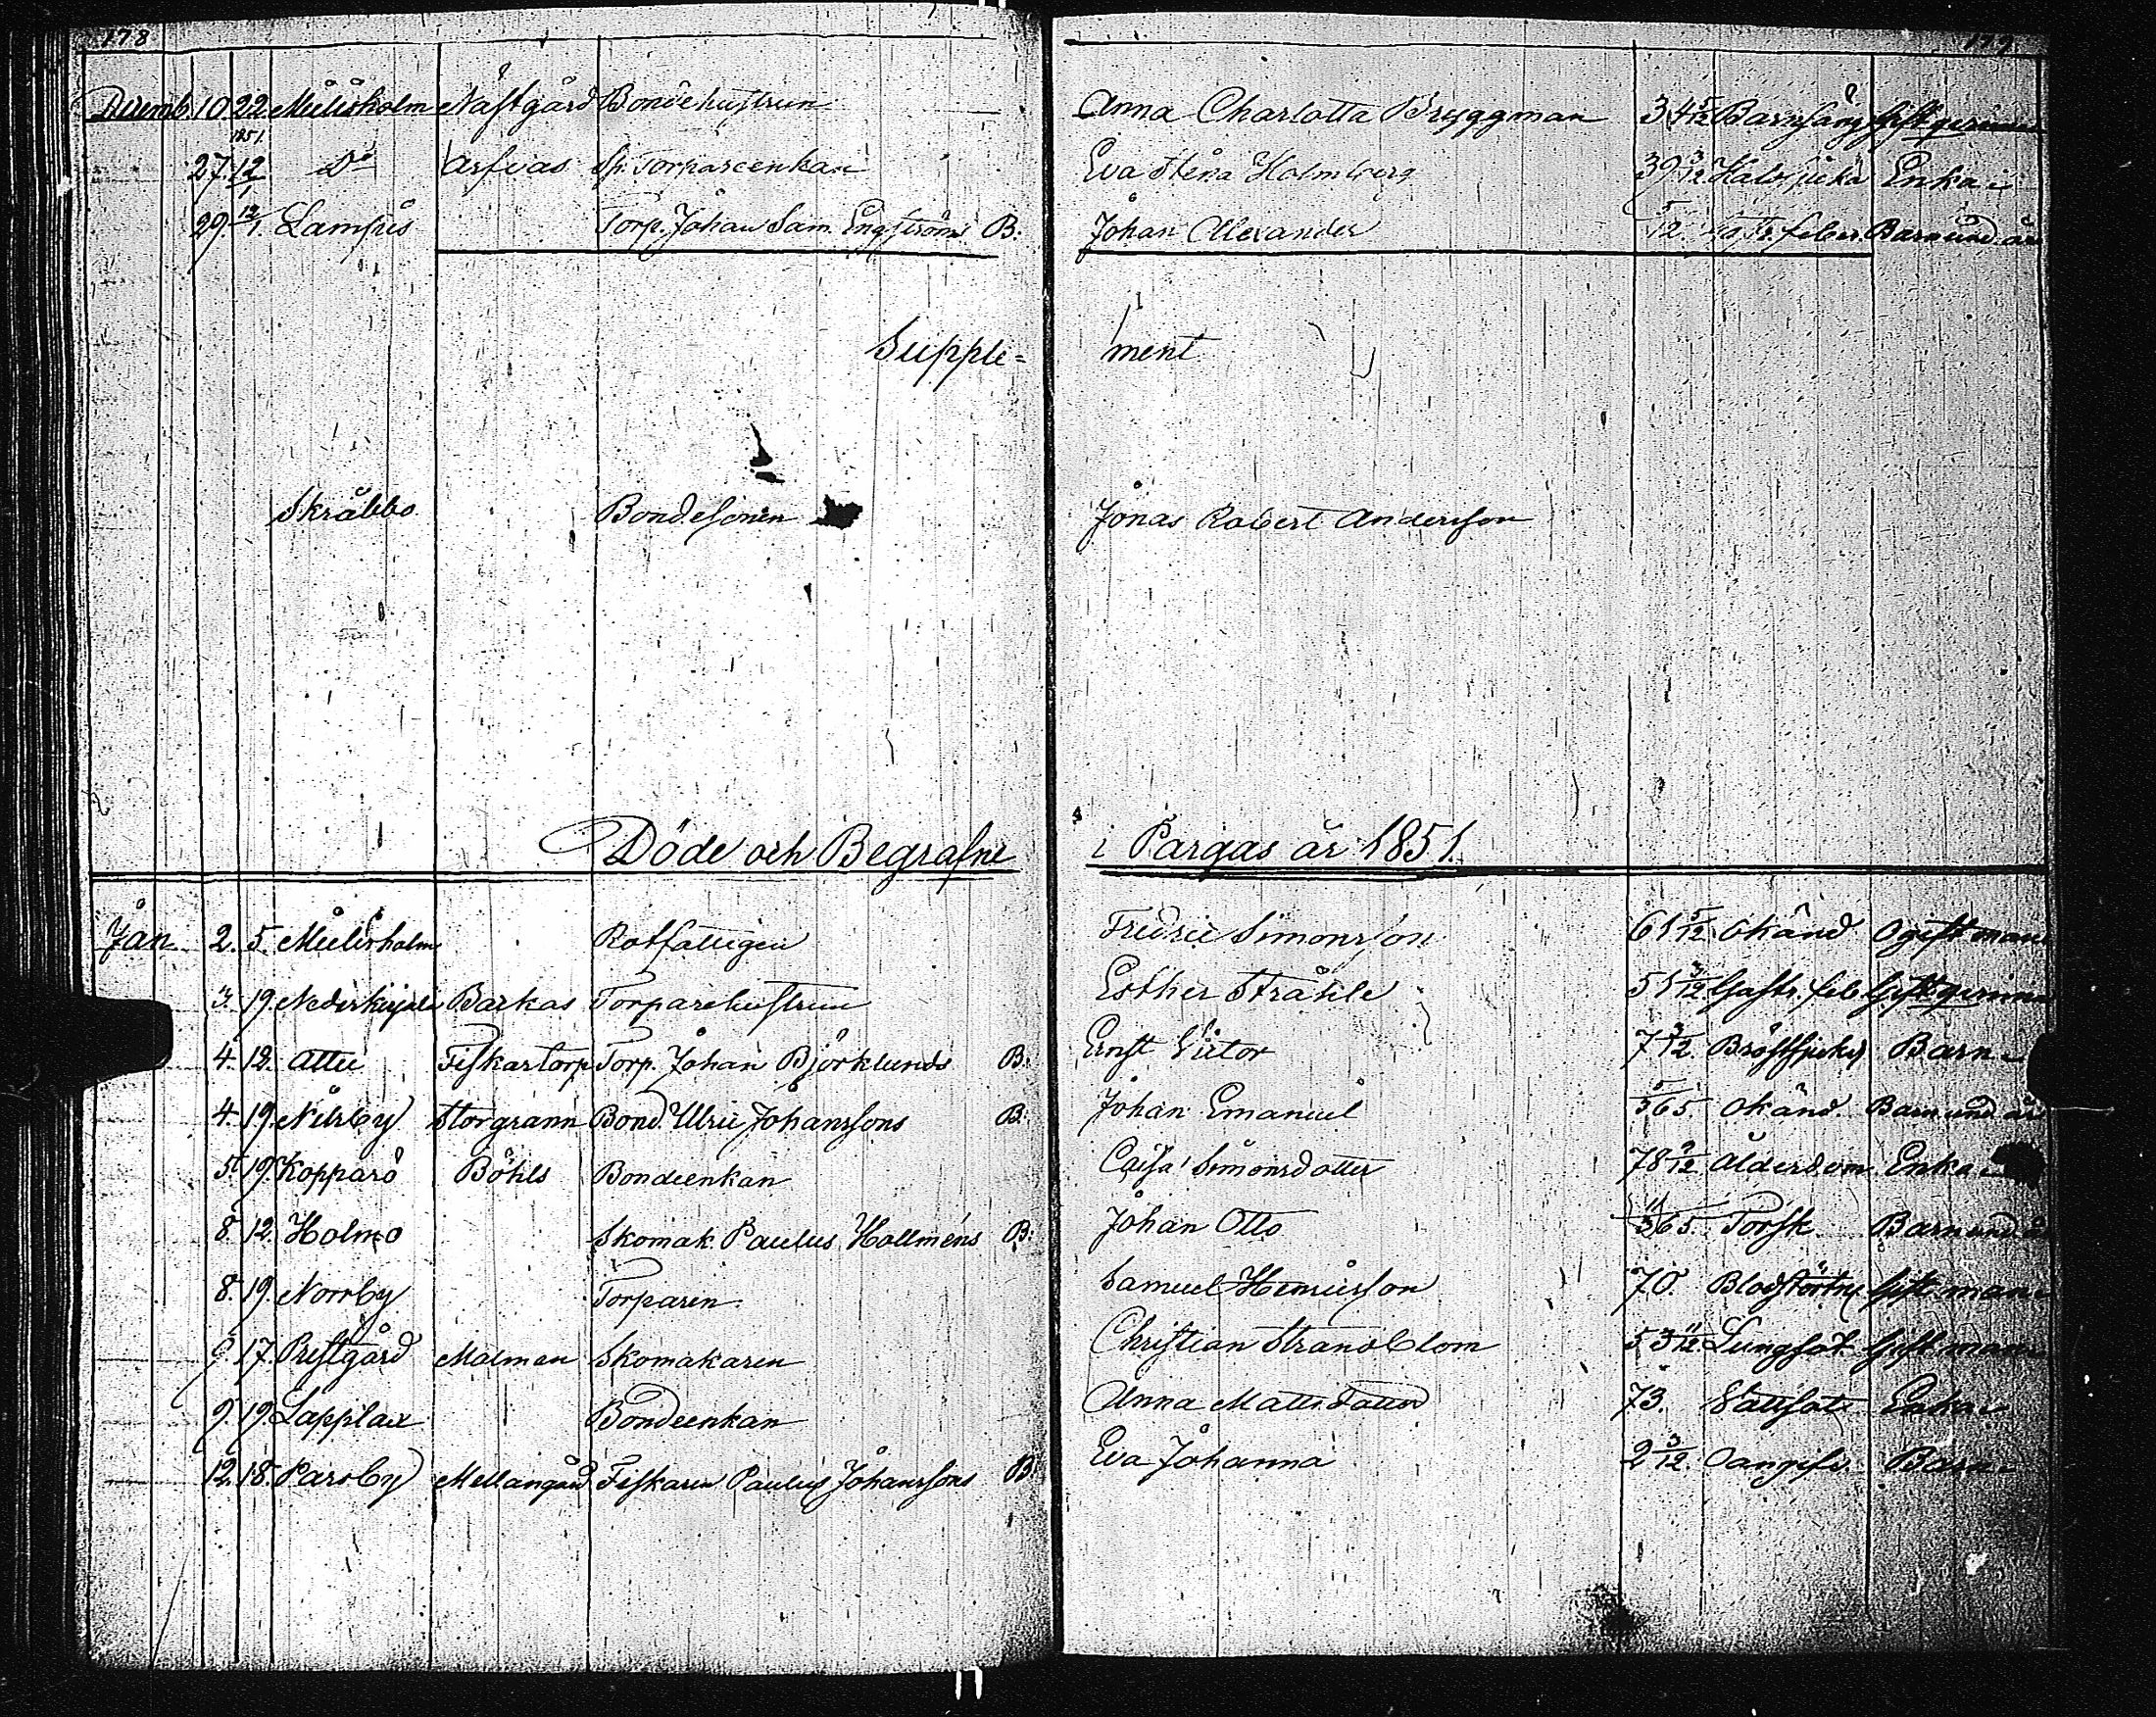 178 179
Decemb. 10 22 Mielisholm Nästgård Bondehustrun Anna Charlotta Bryggman 34 5/12 Barnsäng Gift qvinna
1851.
27. 12/1 Do Arfvas Sp. Torpareenkan Eva Stena Holmberg 39 3/12 Halssjuka Enka
29. 12/1 Lampis Torp. Johan Sam. Engströms B. Johan Alexander 5/12. Gastr. feber. Barn und. år
Supple=ment
Skräbbo Bondesonen Jonas Robert Andersson
Döde och Begrafne i Pargas år 1851.
Jan. 2. 5. Mielisholm Rotfattigen Fredric Simonsson 61 5/12 Okänd Ogift man
3. 19. Nederkirjala Barkas Torparehustrun Esther Stråhle 51 3/12 Gastr. feb. Gift qvinna
4. 12. Attu Fiskartorp Torp. Johan Björklunds B. Ernst Victor 7 3/12. Bröstsjukd. Barn
4. 19. Nilsby Storgrann Bond. Ulric Johanssons B. Johan Emanuel 5/365 Okänd. Barn und. år
5. 19. Kopparö Böhls Bondeenkan Caisa Simonsdotter 78 9/12 Ålderdom Enka
8. 12. Holmo Skomak. Paulus Hollmèns B. Johan Otto 11/365. Torsk Barn und. år
8. 19. Norrby Torparen Samuel Henricsson 70. Blodstörtn. Gift man
9. 17. Prestgård Malmen Skomakaren Christian Strandblom 53 11/12 Lungsot Gift man
9. 19. Lapplax Bondeenkan Anna Mattsdotter 73. Vattsot Enka
12. 18. Parsby Mellangård Fiskaren Paulus Johanssons B. Eva Johanna 2 3/12. Oangifv. Barn